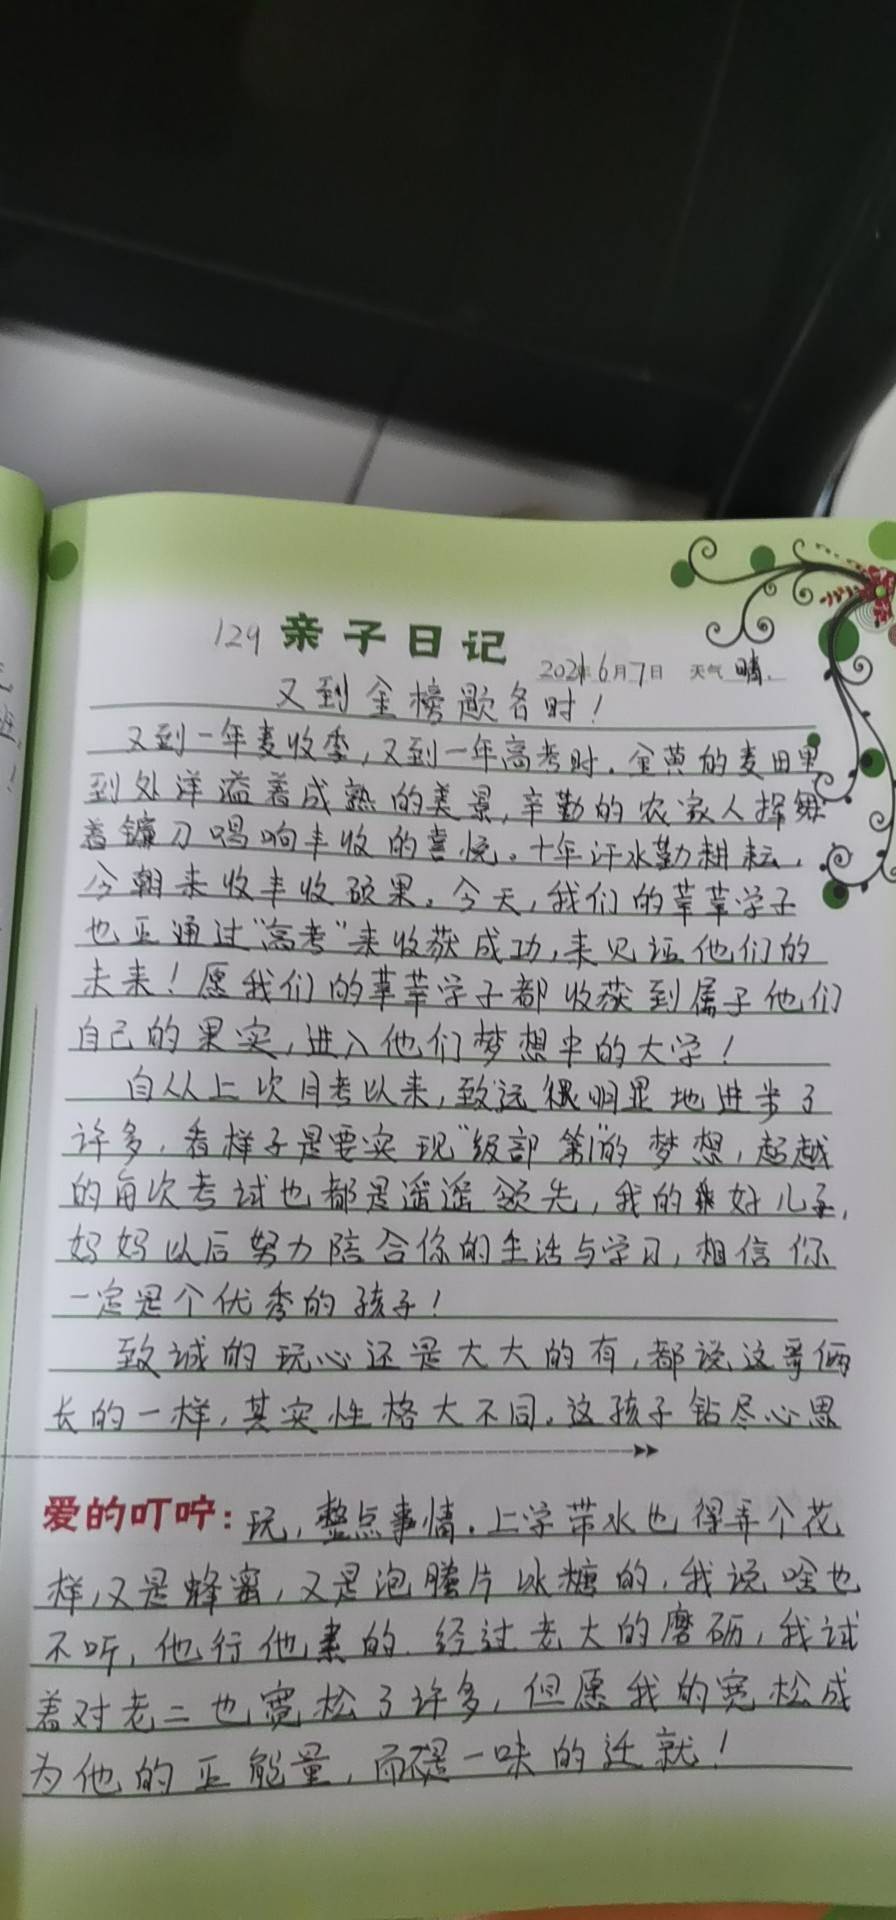 129 亲子日记
2021年6月7日 天气 晴.
又到金榜题名时！
又到一年麦收季，又到一年高考时。金黄的麦田里
到处洋溢着成熟的美景，辛勤的农家人挥舞
着镰刀唱响丰收的喜悦。十年汗水勤耕耘，
今朝来收丰收硕果。今天，我们的莘莘学子
也正通过“高考”来收获成功，来见证他们的
未来！愿我们的莘莘学子都收获到属于他们
自己的果实，进入他们梦想中的大学！
自从上次月考以来，致远很明显地进步了
许多，看样子是要实现“级部第1”的梦想，超越
的每次考试也都是遥遥领先，我的好儿子，
妈妈以后努力陪合你的生活与学习，相信你
一定是个优秀的孩子！
致诚的玩心还是大大的有，都说这哥俩
长的一样，其实性格大不同。这孩子钻尽心思
爱的叮咛：玩，整点事情。上学带水也得弄个花
样，又是蜂蜜，又是泡腾片冰糖的，我说啥也
不听，他行他素的。经过老大的磨砺，我试
着对老二也宽松了许多，但愿我的宽松成
为他的正能量，而不是一味的迁就！